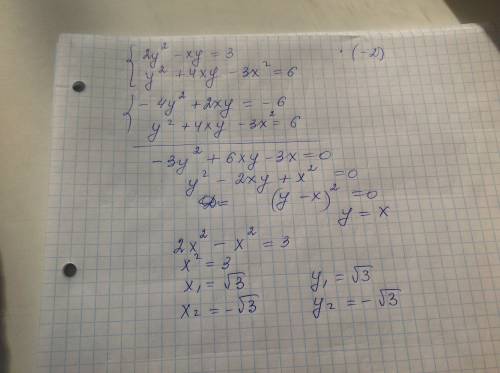 2y² - xy = 3 · (-2)
y² + 4xy - 3x² = 6
- 4y² + 2xy = -6
y² + 4xy - 3x² = 6
-3y² + 6xy - 3x = 0
y² - 2xy + x² = 0
(y - x)² = 0
y = x
2x² - x² = 3
x² = 3
x₁ = √3 y₁ = √3
x₂ = -√3 y₂ = -√3